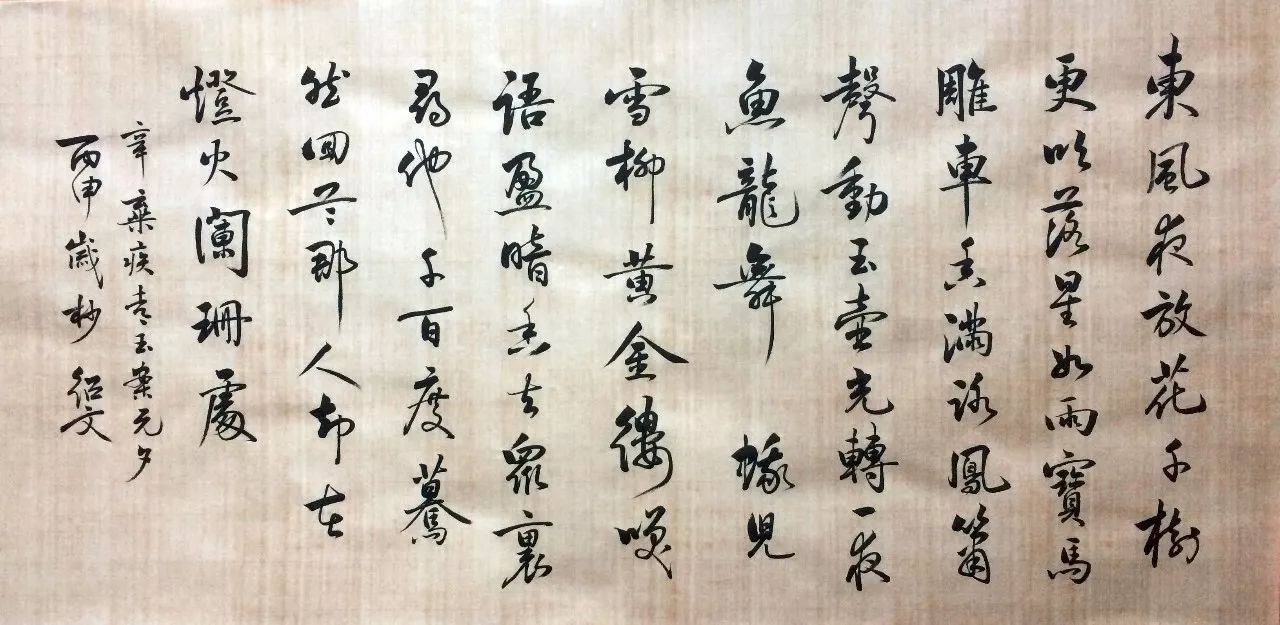 東風夜放花千樹
更吹落星如雨寶馬
雕車香滿路鳳簫
聲動玉壺光轉一夜
魚龍舞 蛾兒
雪柳黃金縷笑
語盈暗香去眾裏
尋他千百度驀
然回首那人却在
燈火闌珊處
辛棄疾青玉案元夕
丙申歲杪紹文